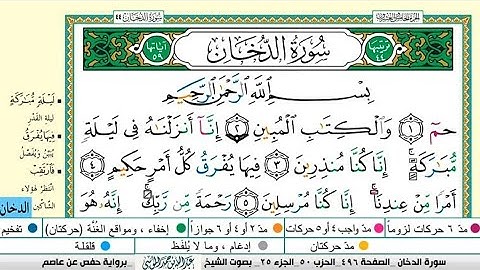 سُورَةُ الدُّخَانِ ٤٤
ترتيبها ٤٤
سُورَةُ الدُّخَانِ
آياتها ٥٩
بِسْمِ اللَّهِ الرَّحْمَٰنِ الرَّحِيمِ
حمٓ ١ وَالْكِتَابِ الْمُبِينِ ٢ إِنَّا أَنزَلْنَاهُ فِي لَيْلَةٍ
مُّبَارَكَةٍ إِنَّا كُنَّا مُنذِرِينَ ٣ فِيهَا يُفْرَقُ كُلُّ أَمْرٍ حَكِيمٍ ٤
أَمْرًا مِّنْ عِندِنَا إِنَّا كُنَّا مُرْسِلِينَ ٥ رَحْمَةً مِّن رَّبِّكَ إِنَّهُ هُوَ
لَيْلَةٍ مُّبَارَكَةٍ
ليلة القدر
فِيهَا يُفْرَقُ
يُبيّن ويُفصّل
فَارْتَقِبْ
انتظر لهؤلاء
الشاكّين
الدخان
مدّ ٦ حركات لزوماً
مدّ واجب ٤ أو ٥ حركات
مدّ ٢ أو ٤ أو ٦ جوازاً
إخفاء، ومواقع الغُنَّة (حركتان)
تفخيم
مدّ حركتان
إدغام، وما لا يُلفَظ
قلقلة
سورة الدخان _الصفحة ٤٩٦ _الحزب ٥٠ _الجزء ٢٥ _بصوت الشيخ
_برواية حفص عن عاصم